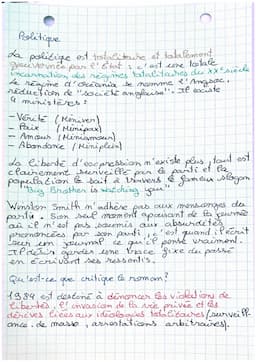 Politique
La politique est totalitaire et totalement
gouvernée par l'État : c'est une totale
incarnation des régimes totalitaires du XXe siècle
Le régime d'Océania se nomme l'Angsoc,
réduction de "société anglaise". Il existe
4 ministères :
- Vérité (Miniver)
- Paix (Minipax)
- Amour (Miniamour)
- Abondance (Miniplein)
La liberté d'expression n'existe plus, tout est
clairement surveillé par le parti et la
population le sait à travers le fameux slogan
"Big Brother is watching you"
Winston Smith n'adhère pas aux mensonges du
parti. Son seul moment apaisant de la journée
où il n'est pas soumis aux absurdités
prononcées par son parti, c'est quand il écrit
sur un journal ce qu'il pense vraiment.
Il désire garder une trace fixe du passé
en écrivant ses ressentis.
Qu'est-ce que critique le roman?
1984 est destiné à dénoncer les violations de
libertés, l'invasion de la vie privée et les
dérives liées aux idéologies totalitaires (surveill-
ance de masse, arrestations arbitraires).